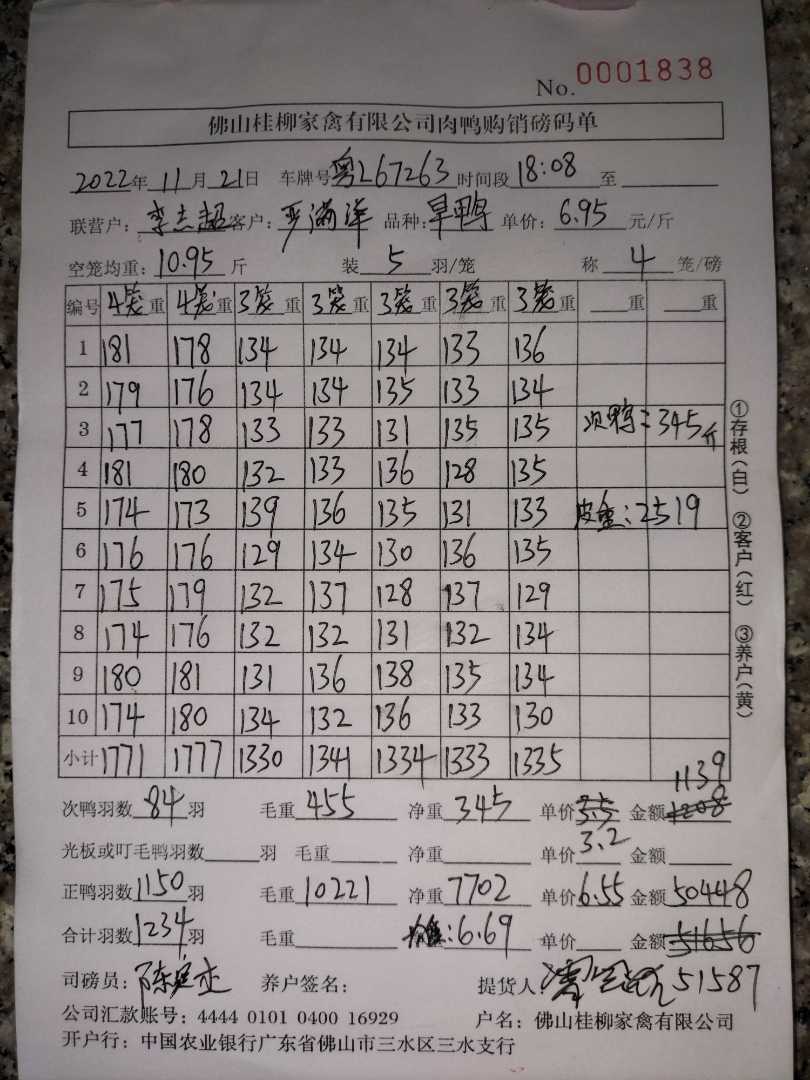 No. 0001838
佛山桂柳家禽有限公司肉鸭购销磅码单
2022年11月21日 车牌号粤L67263 时间段18:08 至
联营户:李志超 客户:严满洋 品种:旱鸭 单价:6.95 元/斤
空笼均重:10.95 斤 装 5 羽/笼 称 4 笼/磅
编号 4笼重 4笼重 3笼重 3笼重 3笼重 3笼重 3笼重 重 重
1 181 178 134 134 134 133 136
2 179 176 134 134 135 133 134
3 177 178 133 133 131 135 135 次鸭:345斤
4 181 180 132 133 136 128 135
5 174 173 139 136 135 131 133 皮重:2519
6 176 176 129 134 130 136 135
7 175 179 132 137 128 137 129
8 174 176 132 132 131 132 134
9 180 181 131 136 138 135 134
10 174 180 134 132 136 133 130
小计 1771 1777 1330 1341 1334 1333 1335
1139
次鸭羽数 84 羽 毛重 455 净重 345 单价 3.5 金额 1208
3.2
光板或叮毛鸭羽数 羽 毛重 净重 单价 金额
正鸭羽数 1150 羽 毛重 10221 净重 7702 单价 6.55 金额 50448
合计羽数 1234 羽 毛重 :6.69 单价 金额 51656
司磅员: 养户签名: 提货人: 51587
公司汇款账号:4444 0101 0400 16929 户名:佛山桂柳家禽有限公司
开户行:中国农业银行广东省佛山市三水区三水支行
①存根(白) ②客户(红) ③养户(黄)